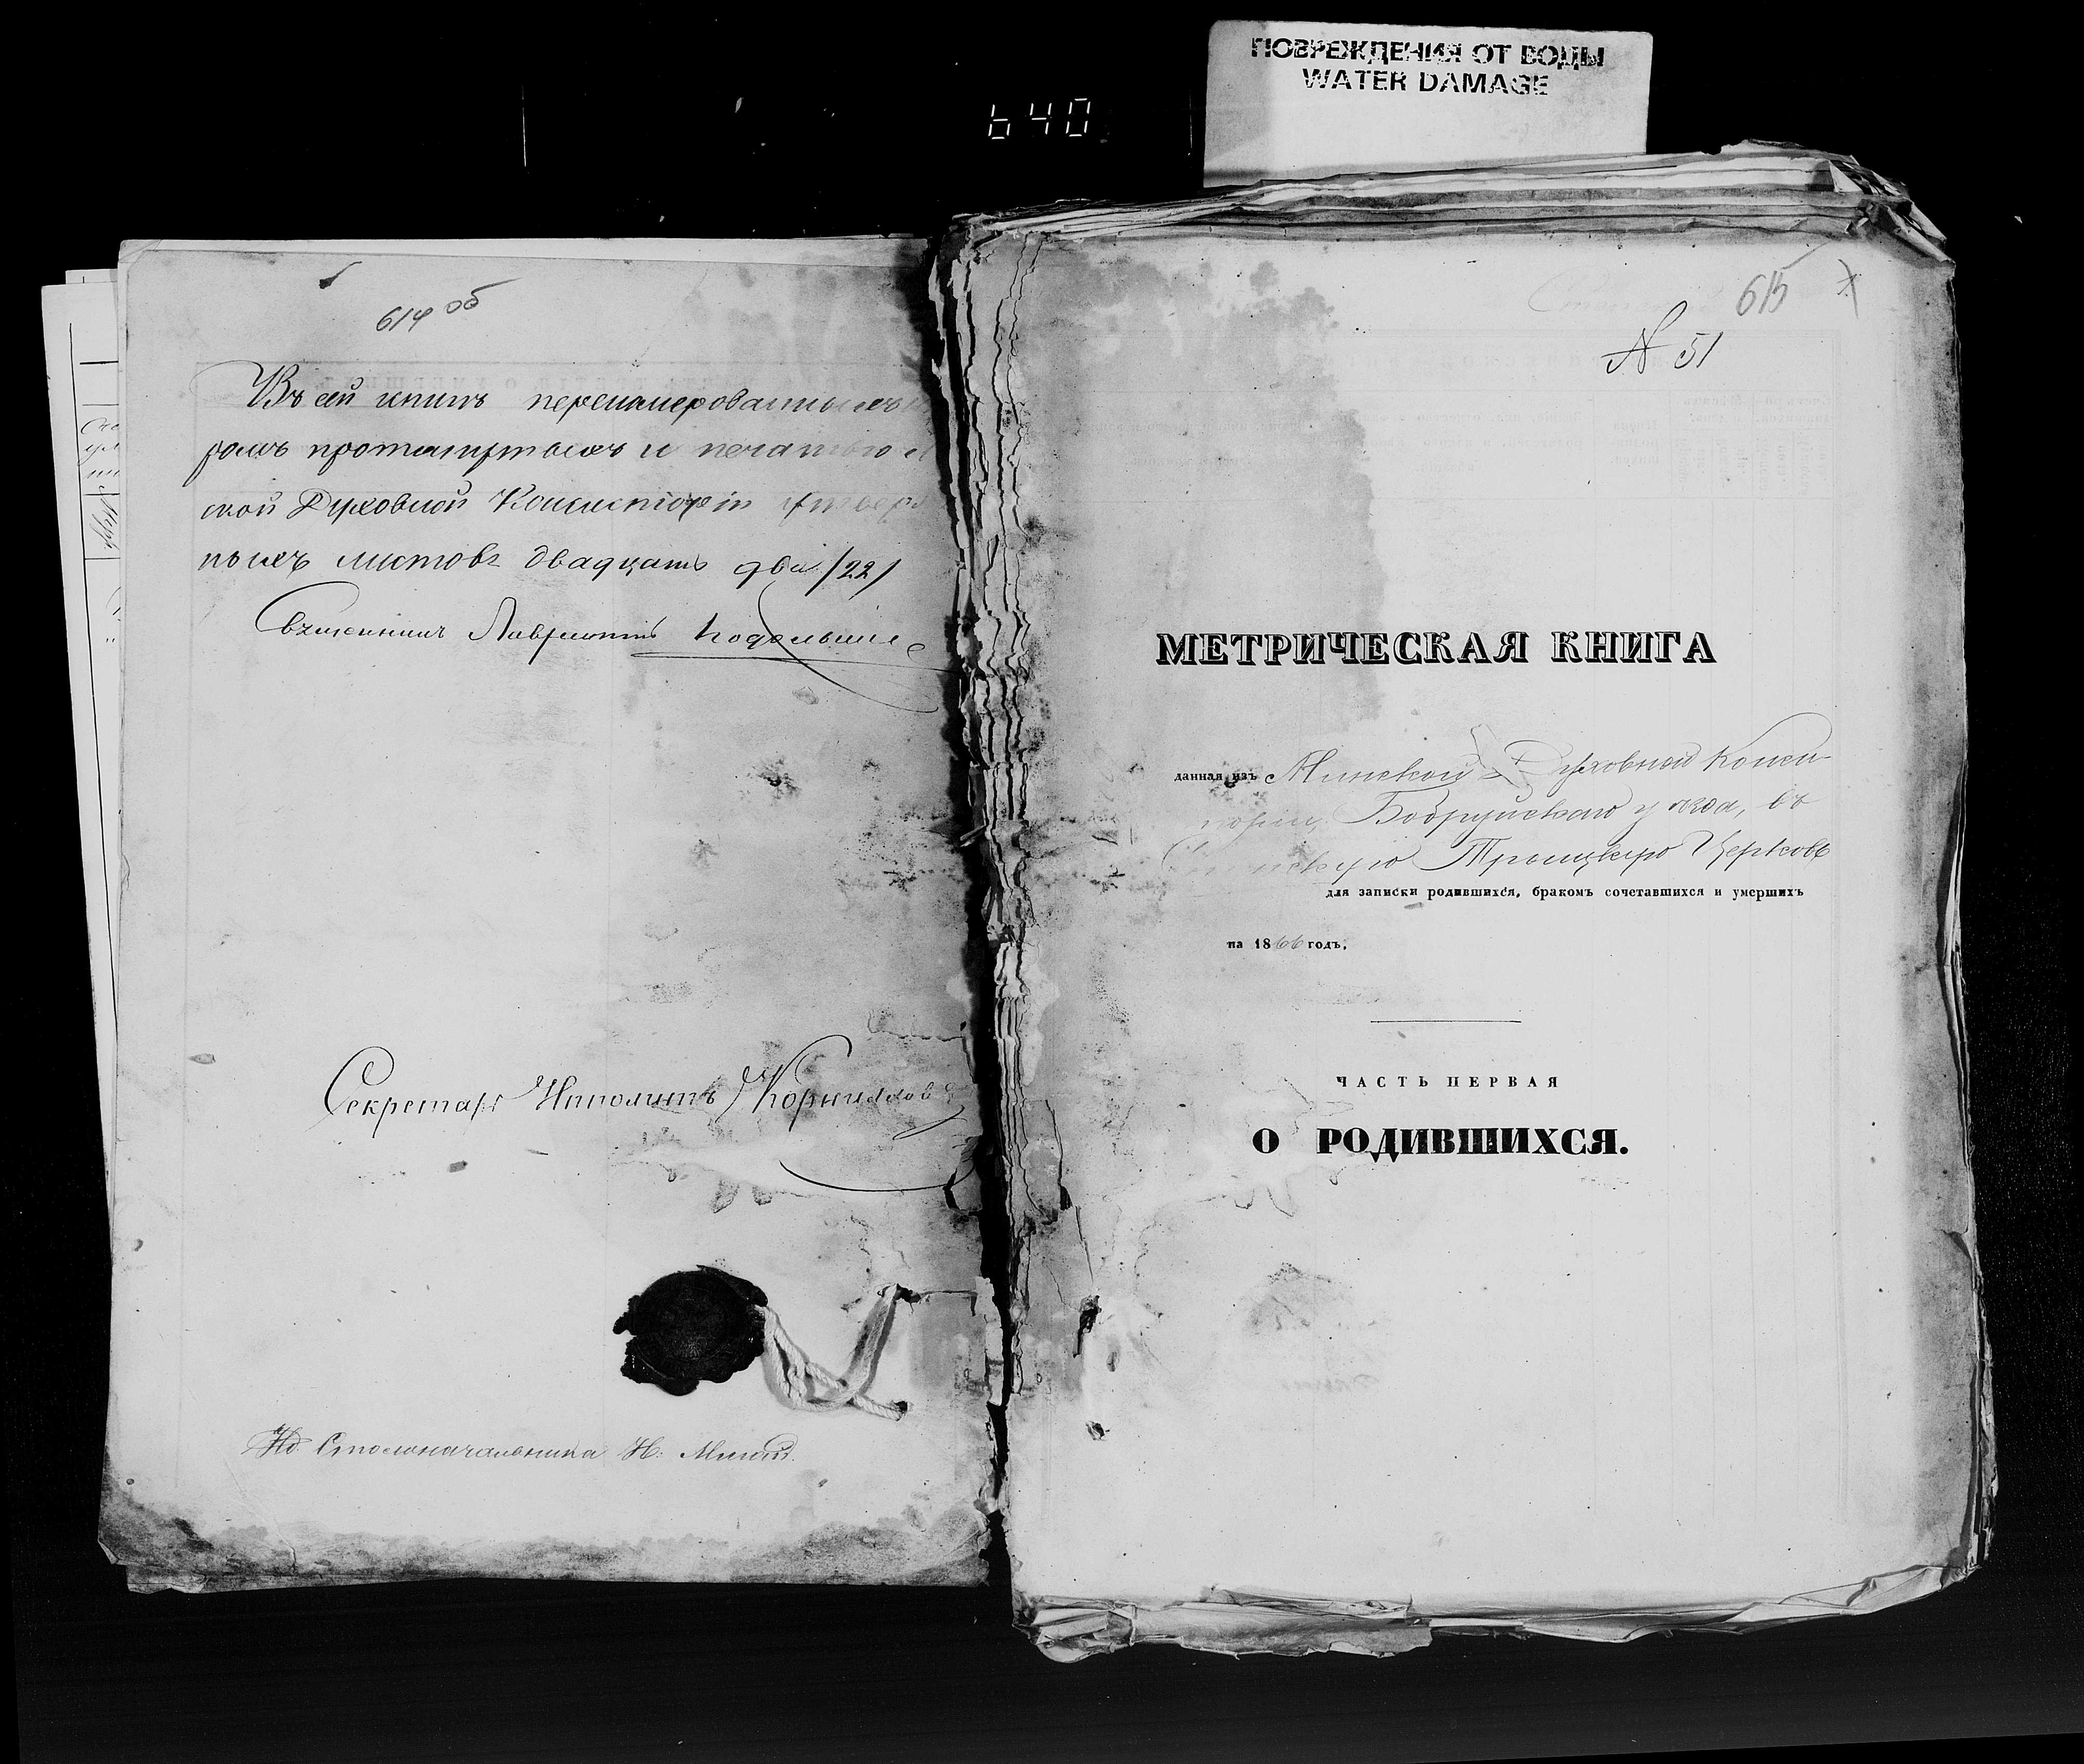 ПОВРЕЖДЕНИЯ ОТ ВОДЫ
WATER DAMAGE
640
614 об
Въ сей книгѣ перенумерованныхъ
ромъ прошнурованныхъ и печатью
ской Духовной Консисторіи утверж
ныхъ листовъ двадцать два /22/
Священникъ Лаврентій
Секретарь Ипполитъ Корниловъ
Ид Столоначальника Н.
615
N 51
МЕТРИЧЕСКАЯ КНИГА
данная изъ Минской Духовной Конси-
торіи, Бобруйскаго уѣзда, въ
Троицкую Церковь
для записки родившихся, бракомъ сочетавшихся и умершихъ
на 1866 годъ.
ЧАСТЬ ПЕРВАЯ
О РОДИВШИХСЯ.